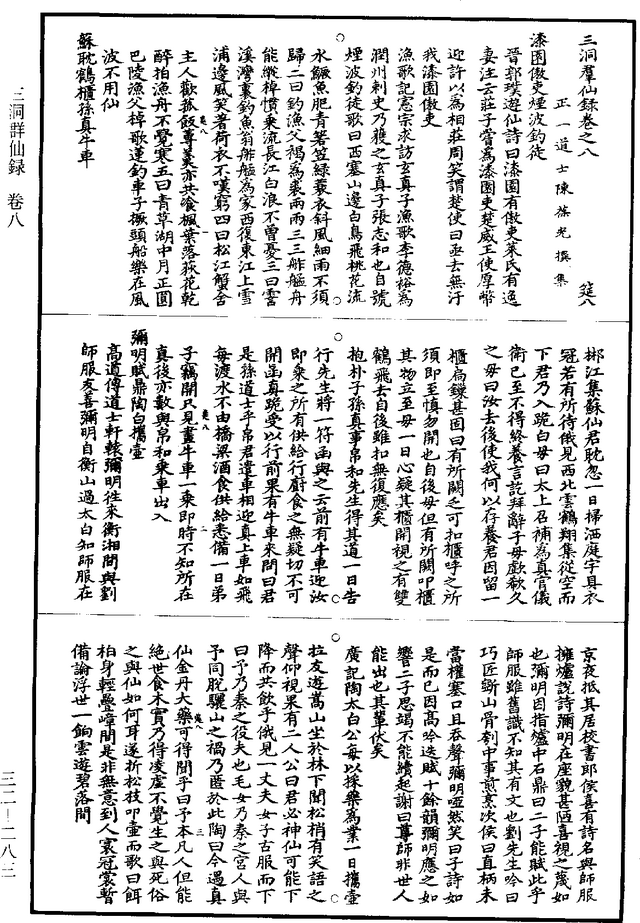 三洞群仙録　卷八
三二—二八三
三洞羣仙録卷之八
筵八
正一道士陳葆光撰集
漆園傲吏煙波釣徒
晉郭璞遊仙詩曰漆園有傲吏萊氏有逸
妻注云莊子嘗為漆園吏楚威王使厚幣
迎許以為相莊周笑謂楚使曰亟去無汙
我漆園傲吏
漁歌記憲宗求訪玄真子漁歌李德裕為
潤州刺史乃獲之玄真子張志和也自號
煙波釣徒歌曰西塞山邊白鳥飛桃花流
水鱖魚肥青箬笠緑蓑衣斜風細雨不須
歸二曰釣漁父褐為裘兩兩三三舴艋舟
能縱棹慣乗流長江白浪不曾憂三曰霅
溪灣裏釣魚翁舴艋為家西復東江上雪
浦邊風笑著荷衣不嘆窮四曰松江蟹舍
主人歡菰飯蓴羹亦共飡楓葉落荻花乾
醉拍漁舟不覺寒五曰青草湖中月正圓
巴陵漁父棹歌蓮釣車子橛頭船樂在風
波不用仙
蘇耽鶴櫃孫真牛車
郴江集蘇仙君耽忽一日掃洒庭宇具衣
冠若有所待俄見西北雲鶴翔集從空而
下君乃入跪白母曰太上召補為真官儀
衛已至不得終養言訖拜辭子母歔欷久
之母曰汝去後使我何以存養君因留一
櫃扃鏁甚固曰有所闕乏可扣櫃呼之所
須即至慎勿開也自後母但有所闕叩櫃
其物立至母一日心疑其櫃開視之有雙
鶴飛去自後雖扣無復應矣
抱朴子孫真事帛和先生得其道一日告
行先生將一符函與之云前有牛車迎汝
即乗之所有供給行廚食之無疑切不可
開函真跪受以行前果有牛車來問曰君
是孫道士乎帛君遣車相迎真上車如飛
每渡水不由橋梁酒食供給悉備一日弟
子竊開只見畫牛車一乗即時不知所在
真後亦數與帛和乗車出入
彌明賦鼎陶白攜壺
高道傳道士軒轅彌明往來衡湘間與劉
師服友善彌明自衡山過太白知師服在
京夜抵其居校書郎侯喜有詩名與師服
擁爐說詩彌明在座貌甚陋喜視之蔑如
也彌明因指爐中石鼎曰二子能賦此乎
師服雖舊識不知其有文也劉先生吟曰
巧匠斲山骨刳中事煎烹次侯曰直柄未
當權塞口且吞聲彌明啞然笑曰子詩如
是而已因高吟迭賦十餘韻彌明應之如
響二子思竭不能續起謝曰尊師非世人
能出也其輩伏矣
廣記陶太白公每以採藥為業一日攜壺
拉友遊嵩山坐於林下聞松梢有笑語之
聲仰視果有二人公曰君必神仙可能下
降而共飲乎俄見一丈夫女子古服而下
曰予乃秦之役夫也毛女乃秦之宮人與
予同脫驪山之禍乃匿於此陶曰今遇真
仙金丹大藥可得聞乎曰予本凡人但能
絶世食木實乃得凌虛不覺生之與死俗
之與仙如何耳遂折松枝叩壺而歌曰餌
柏身輕疊嶂間是非無意到人寰冠裳暫
備論浮世一餉雲遊碧落間